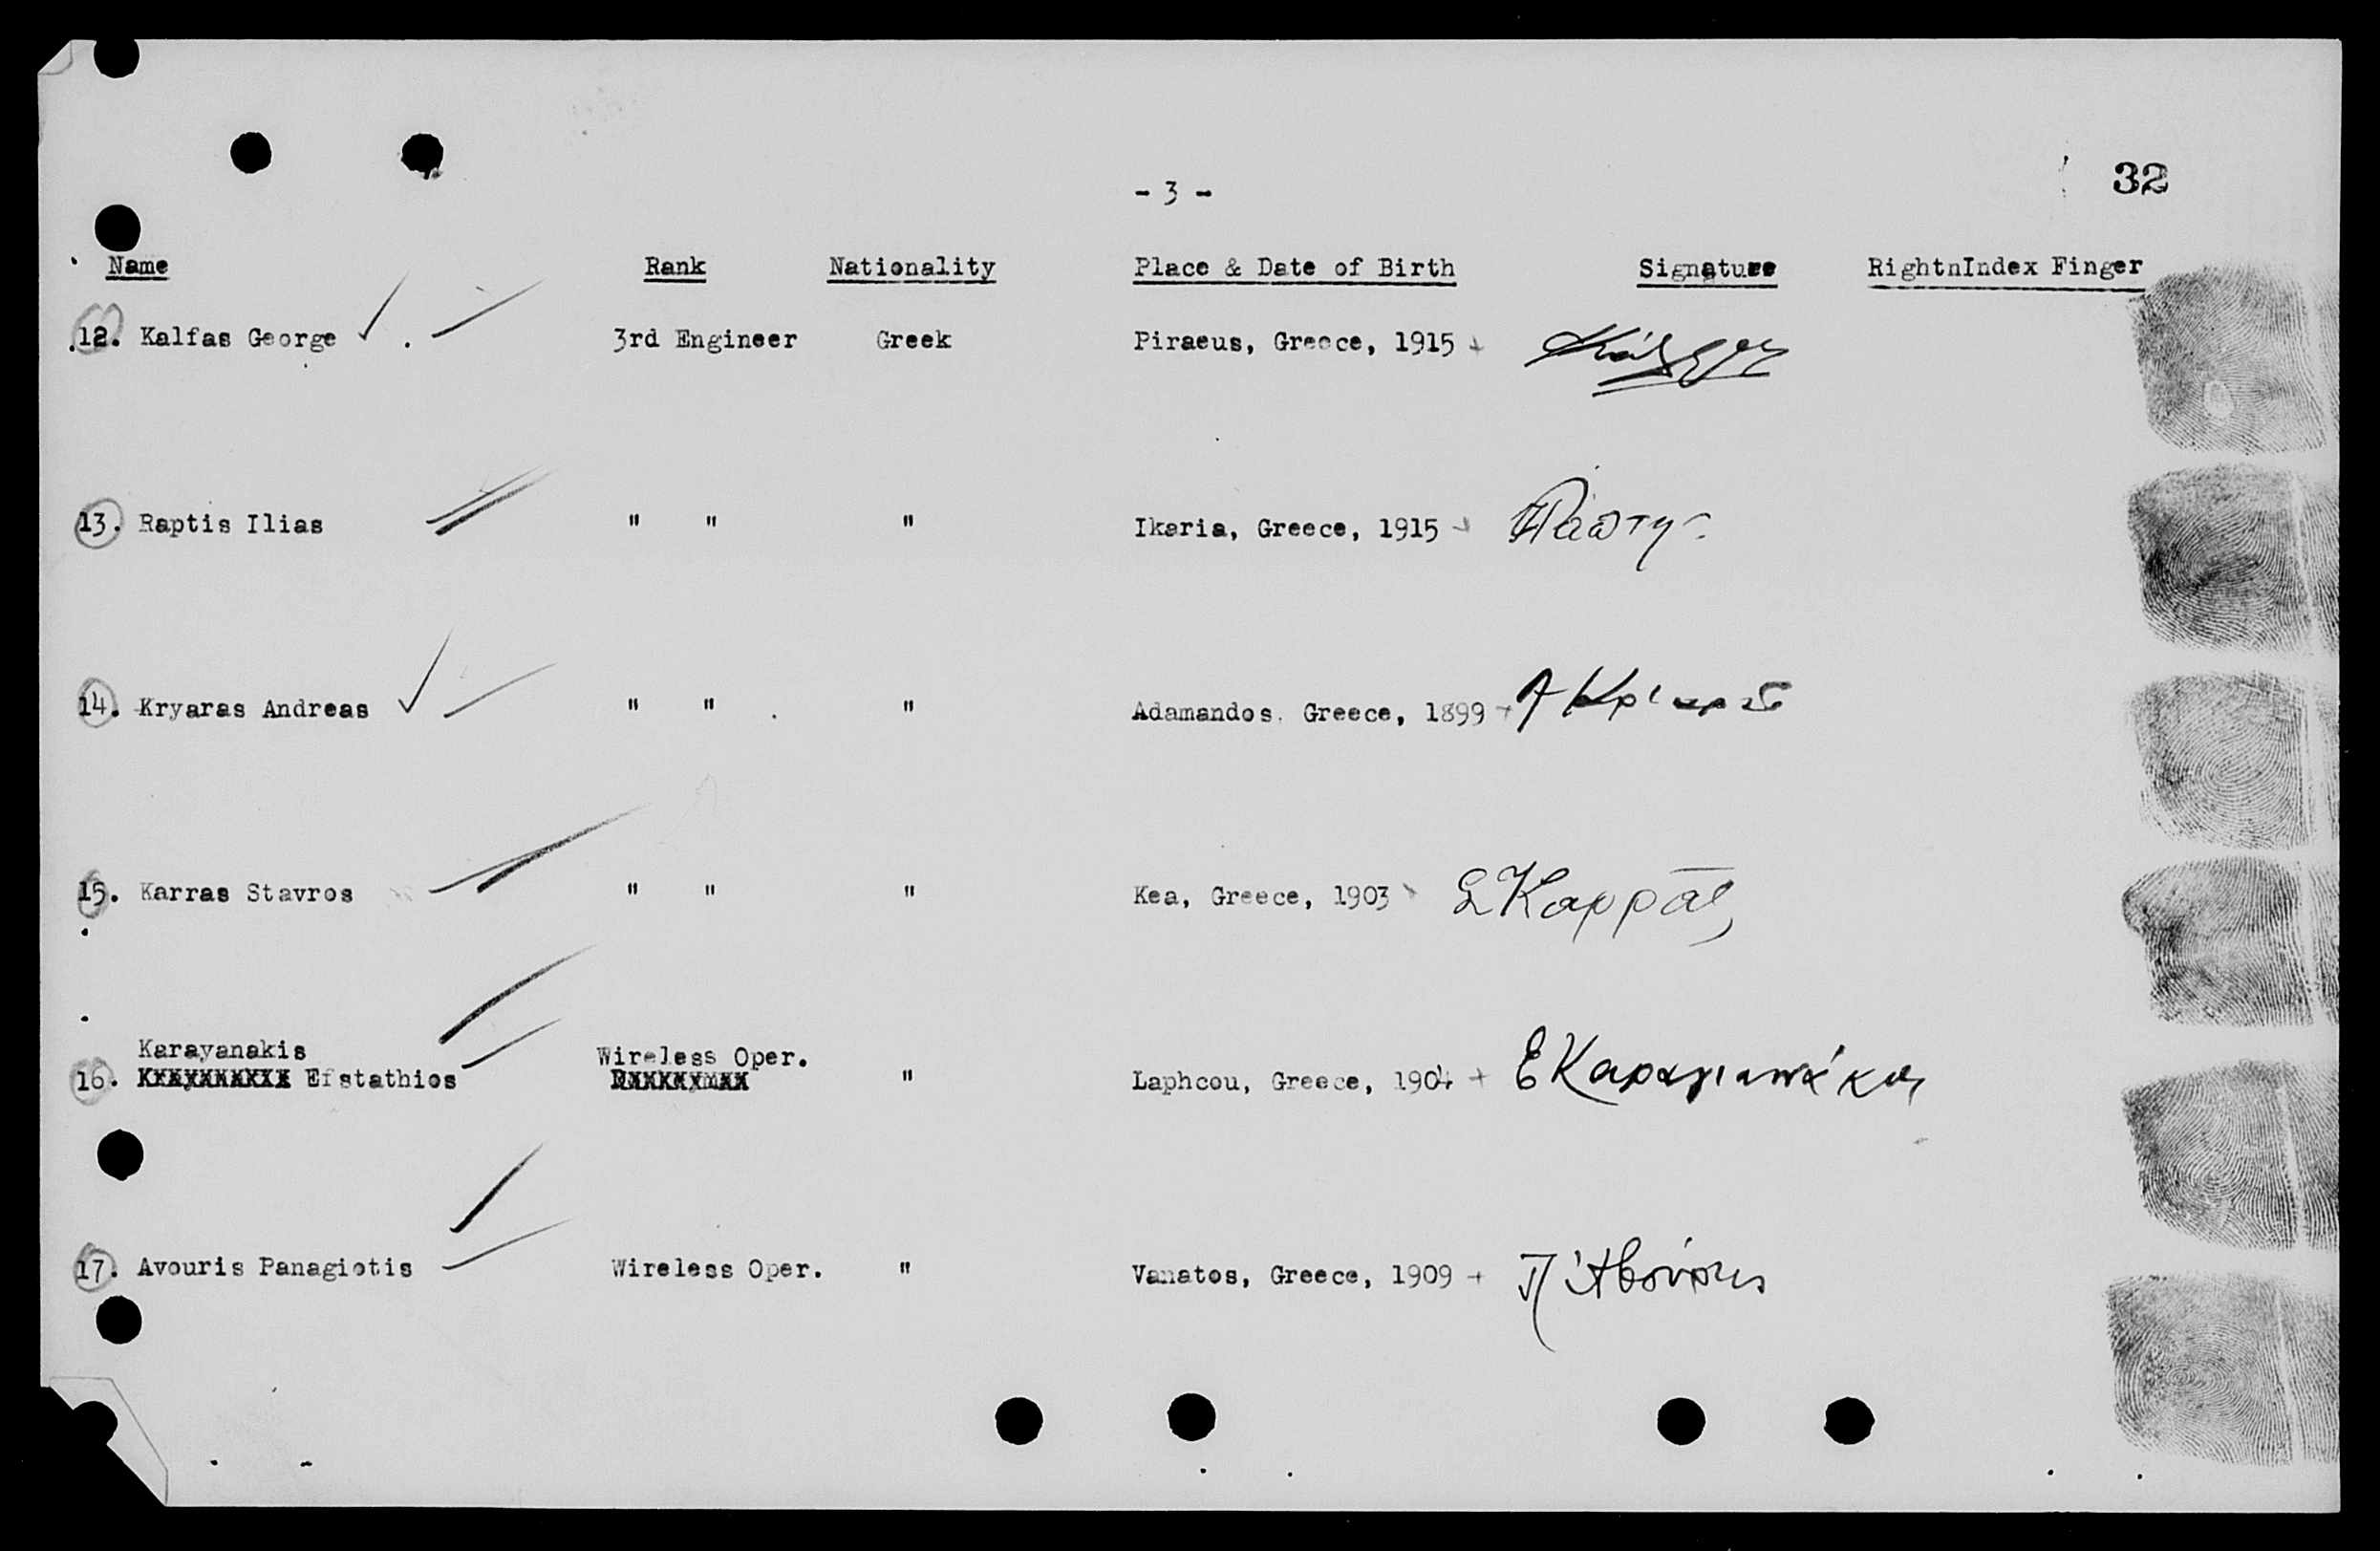 - 3 -
32
Name Rank Nationality Place & Date of Birth Signature RightnIndex Finger
12. Kalfas George 3rd Engineer Greek Piraeus, Greece, 1915
13. Raptis Ilias " " " Ikaria, Greece, 1915
14. Kryaras Andreas " " " Adamandos. Greece, 1899
15. Karras Stavros " " " Kea, Greece, 1903 Σ Καρρᾶς
Karayanakis Wireless Oper.
16. Efstathios " Laphcou, Greece, 1904 Ε Καραγιαννάκης
17. Avouris Panagiotis Wireless Oper. " Vanatos, Greece, 1909 Π Ἀβούρης